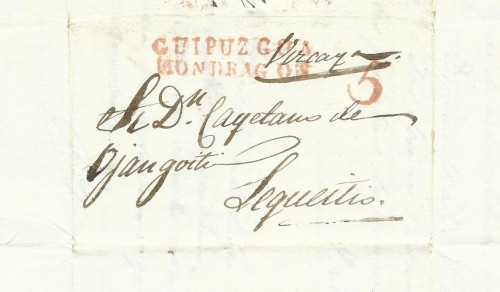 GUIPUZCOA Vizcaya.
MONDRAGON 5
Sr Dn Cayetano de
Ojangoiti
Lequeitio.